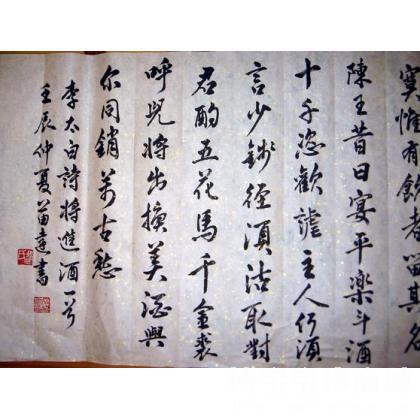 寞惟有飲者留其名
陳王昔日宴平樂斗酒
十千恣歡謔主人何須
言少錢徑須沽取對
君酌五花馬千金裘
呼兒將出換美酒與
尔同銷萬古愁
李太白詩將進酒
壬辰仲夏苗書